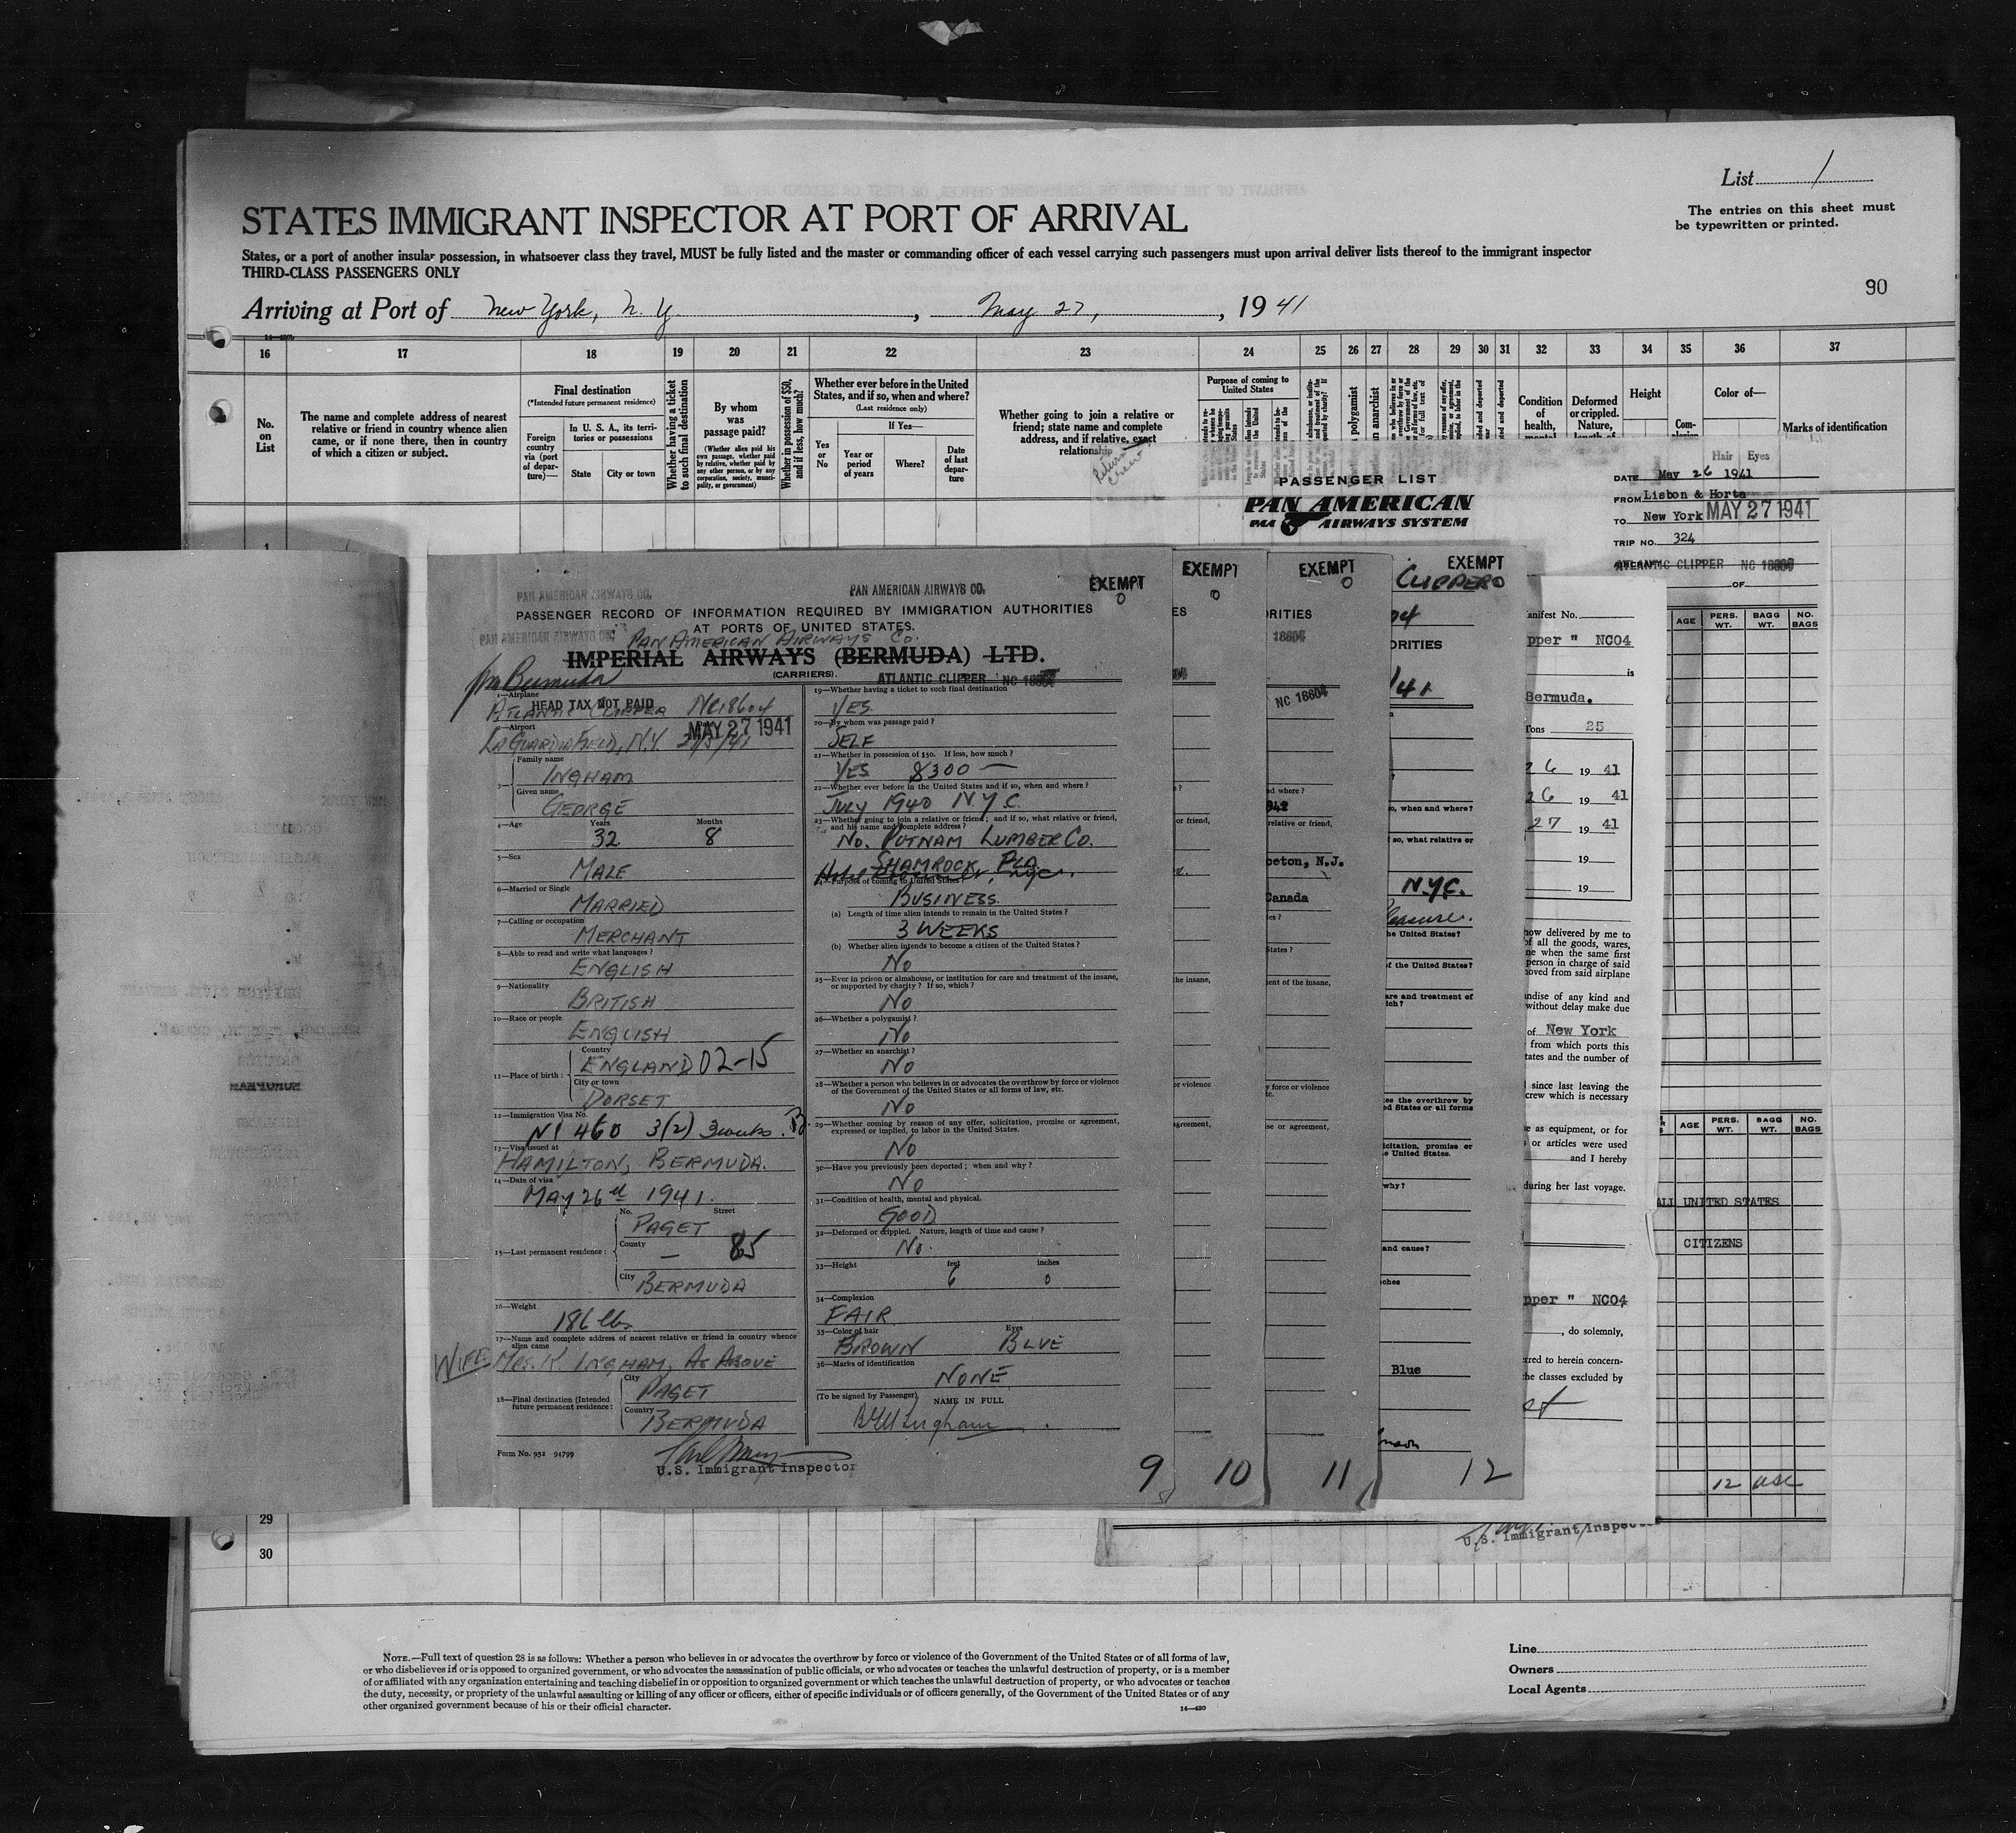 List 1
The entries on this sheet must
be typewritten or printed.
STATES IMMIGRANT INSPECTOR AT PORT OF ARRIVAL
States, or a port of another insular possession, in whatsoever class they travel, MUST be fully listed and the master or commanding officer of each vessel carrying such passengers must upon arrival deliver lists thereof to the immigrant inspector
THIRD-CLASS PASSENGERS ONLY
90
Arriving at Port of New York, N. Y. , May 27, , 19 41
16 17 18 19 20 21 22 23 24 25 26 27 28 29 30 31 32 33 34 35 36 37
No. on List
The name and complete address of nearest
relative or friend in country whence alien
came, or if none there, then in country
of which a citizen or subject.
Final destination
(*Intended future permanent residence)
Foreign
country
via (port
of depar-
ture)—
In U. S. A., its terri-
tories or possessions
State City or town
Whether having a ticket
to such final destination
By whom
was
passage paid?
(Whether alien paid his
own passage, whether paid
by relative, whether paid by
any other person, or by any
corporation, society, munici-
pality, or government)
Whether in possession of $50,
and if less, how much?
Whether ever before in the United
States, and if so, when and where?
(Last residence only)
Yes
or
No
If Yes—
Year or
period
of years
Where?
Date
of last
depar-
ture
Whether going to join a relative or
friend; state name and complete
address, and if relative, exact
relationship
Purpose of coming to
United States
Condition
of
health,
Deformed
or crippled.
Nature,
Height
Color of—
Hair Eyes
Marks of identification
PASSENGER LIST
PAN AMERICAN
PAA AIRWAYS SYSTEM
DATE May 26 1941
FROM Lisbon & Horta
TO New York MAY 27 1941
TRIP NO. 324
ATLANTIC CLIPPER
OF
AGE PERS. WT. BAGG WT. NO. BAGS
PAN AMERICAN AIRWAYS CO.
PAN AMERICAN AIRWAYS CO.
EXEMPT
0
PASSENGER RECORD OF INFORMATION REQUIRED BY IMMIGRATION AUTHORITIES
AT PORTS OF UNITED STATES.
PAN AMERICAN AIRWAYS CO.
PAN AMERICAN AIRWAYS CO.
IMPERIAL AIRWAYS (BERMUDA) LTD.
(CARRIERS).
Bermuda
ATLANTIC CLIPPER
1—Airplane
HEAD TAX NOT PAID
ATLANTIC CLIPPER NC18604
2—Airport
MAY 27 1941
LA GUARDIA FIELD, N.Y.
3— Family name
INGHAM
Given name
GEORGE
4—Age Years Months
32 8
5—Sex
MALE
6—Married or Single
MARRIED
7—Calling or occupation
MERCHANT
8—Able to read and write what languages?
ENGLISH
9—Nationality
BRITISH
10—Race or people
ENGLISH
11—Place of birth: Country
ENGLAND 02-15
City or town
DORSET
12—Immigration Visa No.
NI 460 3(2) 3 weeks. B.
13—Visa issued at
HAMILTON, BERMUDA.
14—Date of visa
MAY 26th 1941.
15—Last permanent residence: No. Street
PAGET
County
— 85
City
BERMUDA
16—Weight
186 lbs
17—Name and complete address of nearest relative or friend in country whence
alien came
WIFE MRS. K INGHAM, AS ABOVE
18—Final destination (Intended
future permanent residence:
City
PAGET
Country
BERMUDA
Form No. 952 94799
U.S. Immigrant Inspector
19—Whether having a ticket to such final destination
YES
20—By whom was passage paid?
SELF
21—Whether in possession of $50. If less, how much?
YES $300 —
22—Whether ever before in the United States and if so, when and where?
JULY 1940 N.Y.C.
23—Whether going to join a relative or friend; and if so, what relative or friend,
and his name and complete address?
No. PUTNAM LUMBER CO.
SHAMROCK, FLA.
24—Purpose of coming to United States?
BUSINESS.
(a) Length of time alien intends to remain in the United States?
3 WEEKS
(b) Whether alien intends to become a citizen of the United States?
No
25—Ever in prison or almshouse, or institution for care and treatment of the insane,
or supported by charity? If so, which?
No
26—Whether a polygamist?
No
27—Whether an anarchist?
No
28—Whether a person who believes in or advocates the overthrow by force or violence
of the Government of the United States or all forms of law, etc.
No
29—Whether coming by reason of any offer, solicitation, promise or agreement,
expressed or implied, to labor in the United States.
No
30—Have you previously been deported; when and why?
No
31—Condition of health, mental and physical.
GOOD
32—Deformed or crippled. Nature, length of time and cause?
No.
33—Height feet inches
6 0
34—Complexion
FAIR
35—Color of hair Eyes
BROWN BLUE
36—Marks of identification
NONE
(To be signed by Passenger) NAME IN FULL
9
EXEMPT
0
10
EXEMPT
0
ORITIES
NC 18604
relative or friend,
eton, N.J.
Canada
11
EXEMPT
CLIPPER 0
ORITIES
/41
so, when and where?
so, what relative or
N.Y.C.
leasure.
he United States?
f the United States?
are and treatment of
es the overthrow by
ed States or all forms
icitation, promise or
e United States.
why?
and cause?
ches
Blue
12
anifest No.
pper " NC04
is
Bermuda.
Tons 25
26 19 41
26 19 41
27 19 41
19
19
now delivered by me to
of all the goods, wares,
ne when the same first
person in charge of said
oved from said airplane
ndise of any kind and
without delay make due
of New York
from which ports this
tates and the number of
since last leaving the
crew which is necessary
e as equipment, or for
or articles were used
and I hereby
during her last voyage.
pper " NC04
, do solemnly,
rred to herein concern-
he classes excluded by
AGE PERS. WT. BAGG WT. NO. BAGS
ALL UNITED STATES
CITIZENS
12 USC
U.S. Immigrant Inspector
29
30
NOTE.—Full text of question 28 is as follows: Whether a person who believes in or advocates the overthrow by force or violence of the Government of the United States or of all forms of law,
or who disbelieves in or is opposed to organized government, or who advocates the assassination of public officials, or who advocates or teaches the unlawful destruction of property, or is a member
of or affiliated with any organization entertaining and teaching disbelief in or opposition to organized government or which teaches the unlawful destruction of property, or who advocates or teaches
the duty, necessity, or propriety of the unlawful assaulting or killing of any officer or officers, either of specific individuals or of officers generally, of the Government of the United States or of any
other organized government because of his or their official character.
14—430
Line
Owners
Local Agents